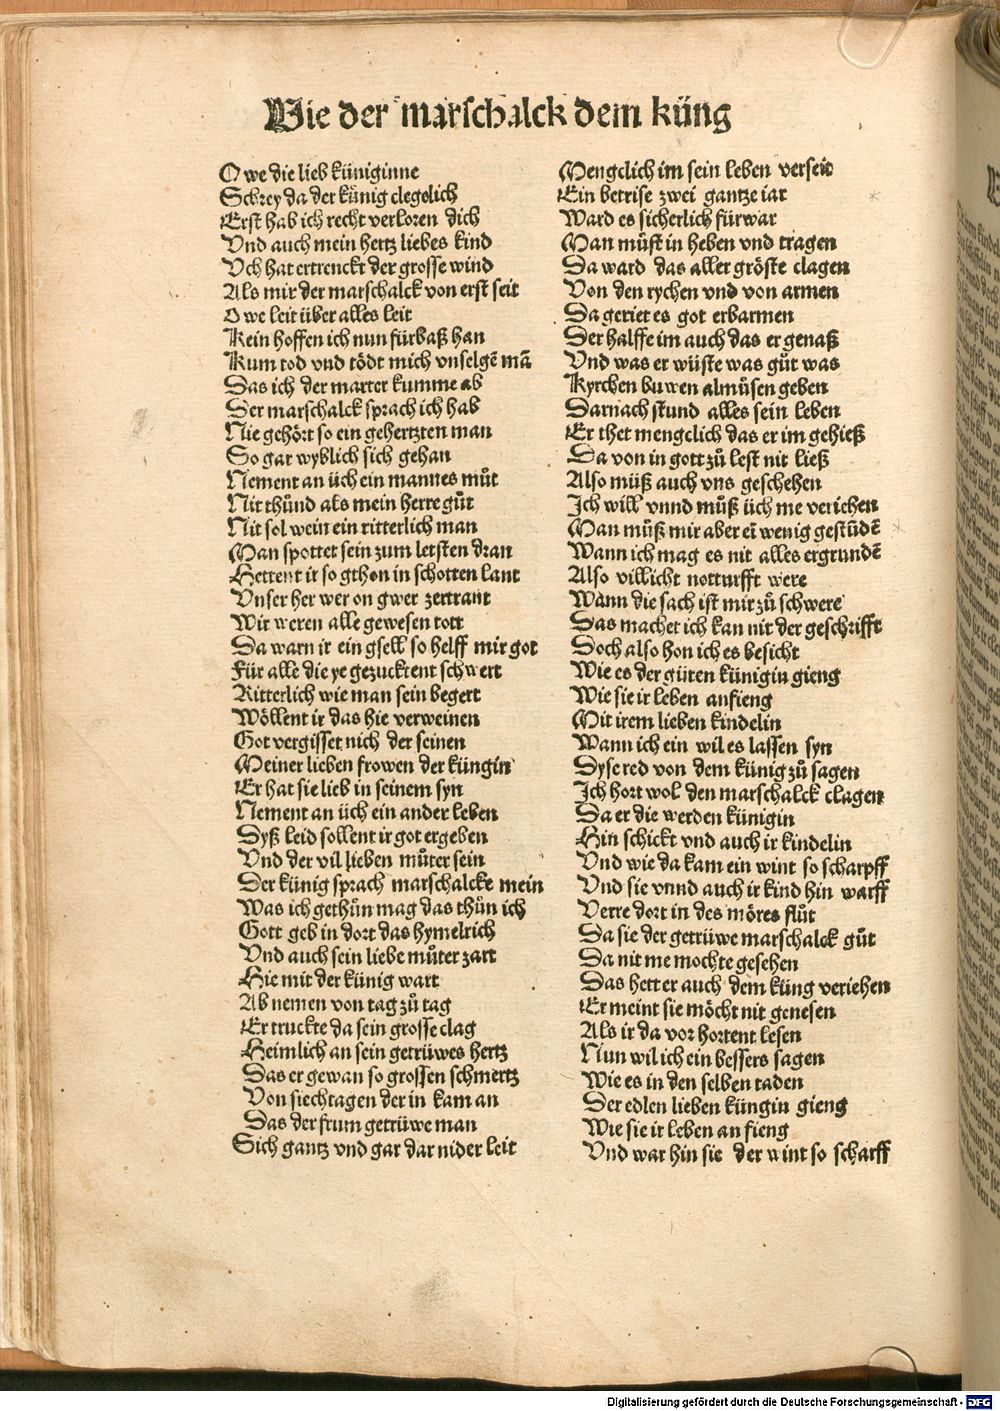 Wie der marschalck dem küng
O we die lieb küniginne
Schrey da der künig clegelich
Erst hab ich recht verloren dich
Vnd auch mein hertz liebes kind
Vch hat ertrenckt der grosse wind
Als mir der marschalck von erst seit
O we leit über alles leit
Kein hoffen ich nun fürbaß han
Kum tod vnd tödt mich vnselgē mā
Das ich der marter kumme ab
Der marschalck sprach ich hab
Nie gehört so ein gehertzten man
So gar wyblich sich gehan
Nement an üch ein mannes müt
Nit thünd als mein herre güt
Nit sol wein ein ritterlich man
Man spottet sein zum letsten dran
Hettent ir so gthon in schotten lant
Vnser her wer on gwer zertrant
Wir weren alle gewesen tott
Da warn ir ein gsell so helff mir got
Für alle die ye gezucktent schwert
Ritterlich wie man sein begert
Wöllent ir das hie verweinen
Got vergisset nich der seinen
Meiner lieben frowen der küngin
Er hat sie lieb in seinem syn
Nement an üch ein ander leben
Dyß leid sollent ir got ergeben
Vnd der vil lieben müter sein
Der künig sprach marschalcke mein
Was ich gethün mag das thün ich
Gott geb in dort das hymelrich
Vnd auch sein liebe müter zart
Hie mit der künig wart
Ab nemen von tag zü tag
Er truckte da sein grosse clag
Heimlich an sein getrüwes hertz
Das er gewan so grossen schmertz
Von siechtagen der in kam an
Das der frum getrüwe man
Sich gantz vnd gar dar nider leit
Mengclich im sein leben verseit
Ein betrise zwei gantze iar
Ward es sicherlich fürwar
Man müst in heben vnd tragen
Da ward das aller gröste clagen
Von den rychen vnd von armen
Da geriet es got erbarmen
Der halffe im auch das er genaß
Vnd was er wüste was güt was
Kyrchen buwen almüsen geben
Darnach stund alles sein leben
Er thet mengclich das er im gehieß
Da von in gott zü lest nit ließ
Also müß auch vns geschehen
Ich will vnnd müß üch me veriehen
Man müß mir aber eī wenig gestūdē
Wann ich mag es nit alles ergrundē
Also villicht notturfft were
Wann die sach ist mir zü schwere
Das machet ich kan nit der geschrifft
Doch also hon ich es besicht
Wie es der güten künigin gieng
Wie sie ir leben anfieng
Mit irem lieben kindelin
Wann ich ein wil es lassen syn
Dyse red von dem künig zü sagen
Ich hort wol den marschalck clagen
Da er die werden künigin
Hin schickt vnd auch ir kindelin
Vnd wie da kam ein wint so scharpff
Vnd sie vnnd auch ir kind hin warff
Verre dort in des möres flüt
Da sie der getrüwe marschalck güt
Da nit me mochte gesehen
Das hett er auch dem küng veriehen
Er meint sie möcht nit genesen
Als ir da vor hortent lesen
Nun wil ich ein bessers sagen
Wie es in den selben taden
Der edlen lieben küngin gieng
Wie sie ir leben an fieng
Vnd war hin sie der wint so scharff
Digitalisierung gefördert durch die Deutsche Forschungsgemeinschaft - DFG